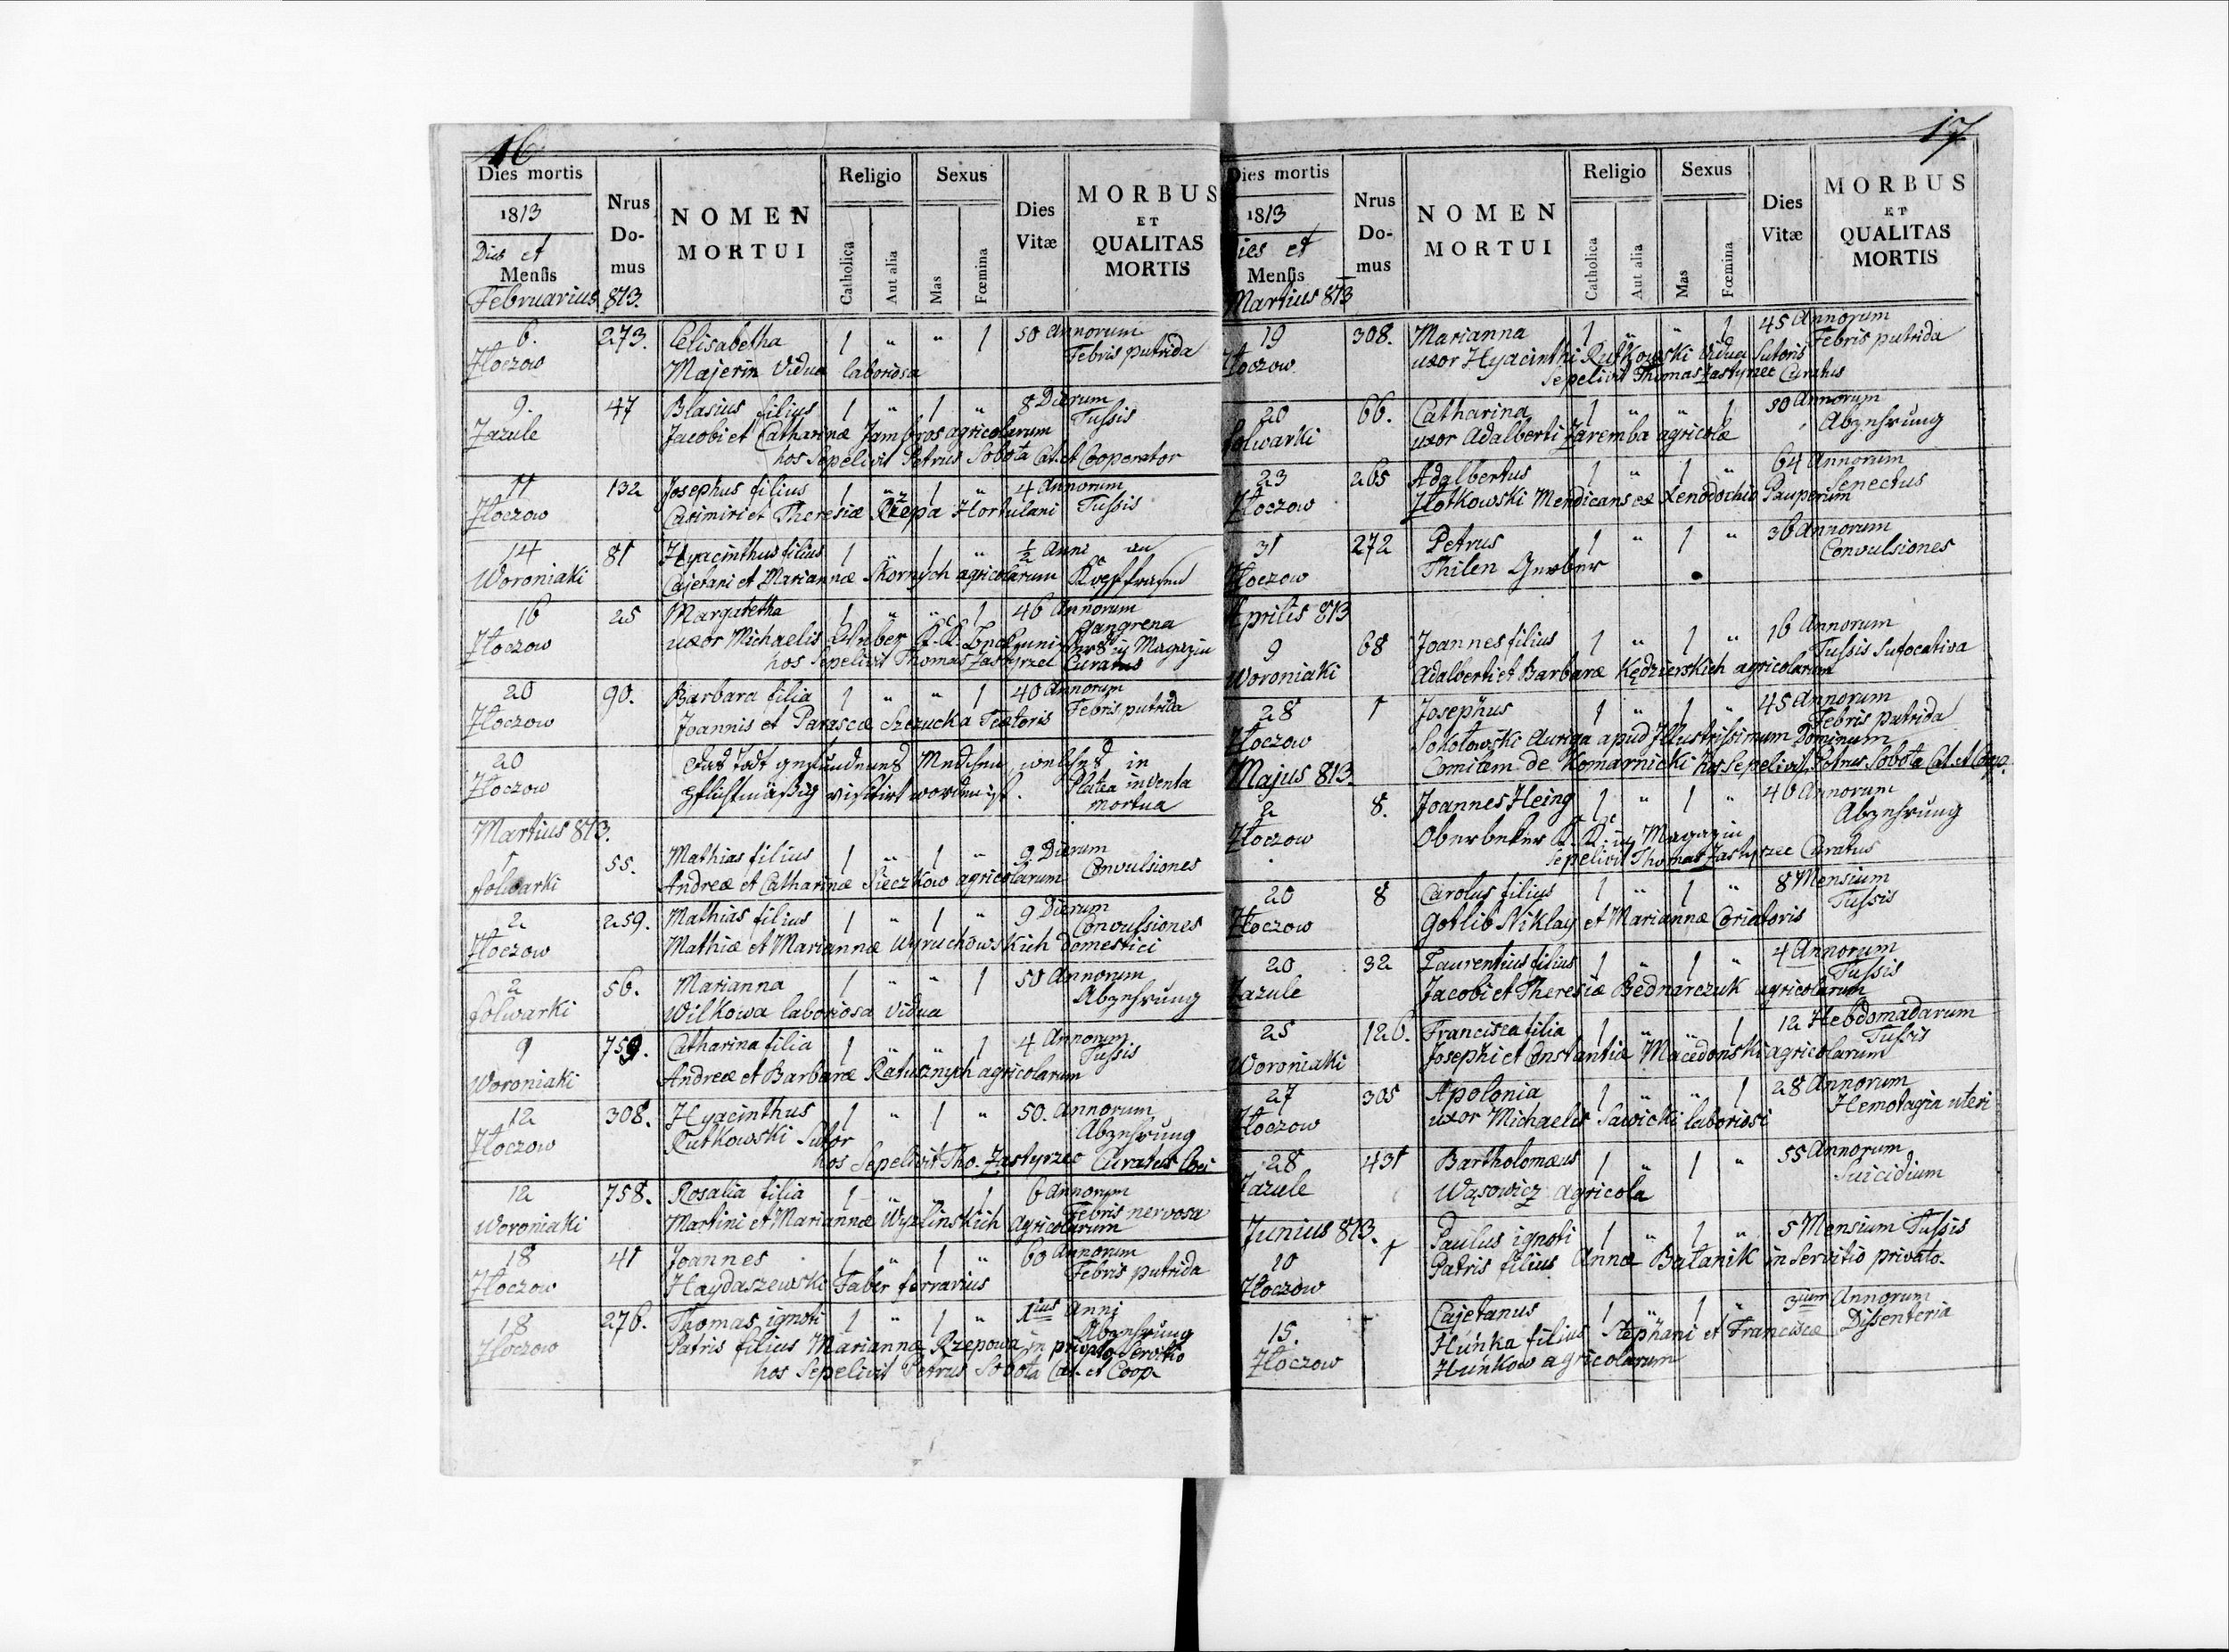 16
Dies mortis
1813
Dies et
Mensis
Februarius 813.
Nrus
Do-
mus
NOMEN
MORTUI
Religio
Catholica
Aut alia
Sexus
Mas
Fœmina
Dies
Vitæ
MORBUS
ET
QUALITAS
MORTIS
6. 273. Elisabetha 1 " " 1 50 Annorum
Febris putrida
Złoczow Majerin Vidua laboriosa
9. 47 Blasius filius 1 " 1 " 8 Dierum
Tussis
Zazule Jacobi et Catharinæ Jambros agricolarum
hos Sepelivit Petrus Sobota Cat. et Cooperator
11 132 Josephus filius 1 " 1 " 4 Annorum
Złoczow Casimiri et Theresiæ Rzepa Hortulani Tussis
14 81 Hyacinthus filius 1 " 1 " ½ Anni
Woroniaki Cajetani et Mariannæ Skornych agricolarum
16 25 Margaretha 1 " " 1 46 Annorum
gangrena
Złoczow uxor Michaelis K. K. Magazin
hos Sepelivit Thomas Zastyrzec Curatus
20 90. Barbara filia 1 " " 1 40 Annorum
Febris putrida
Złoczow Joannis et Parasceæ Szczucka Textoris
20 das todt gefundenes Medchen welches in
Złoczow pflichtmäßig visitirt worden ist. Platea inventa
mortua
Martius 813.
1 55. Mathias filius 1 " 1 " 9 Dierum
folwarki Andreæ et Catharinæ Sieczkow agricolarum Convulsiones
2 259. Mathias filius 1 " 1 " 9 Dierum
Convulsiones
Złoczow Mathiæ et Mariannæ Wyruchowskich domestici
2 56. Marianna 1 " " 1 50 Annorum
Abzehrung
folwarki Wilkowa laboriosa Vidua
9 759. Catharina filia 1 " " 1 4 Annorum
Tussis
Woroniaki Andreæ et Barbaræ Ratusznych agricolarum
12 308. Hyacinthus 1 " 1 " 50. Annorum
Abzehrung
Złoczow Rutkowski Sutor
hos Sepelivit Tho. Zastyrzec Curatus
12 758. Rosalia filia 1 " " 1 6 Annorum
Febris nervosa
Woroniaki Martini et Mariannæ Wyzlinskich agricolarum
18 41 Joannes 1 " 1 " 60 Annorum
Febris putrida
Złoczow Haydaszewski Faber ferrarius
18 276. Thomas ignoti 1 " 1 " 1ius Anni
Abzehrung
Złoczow Patris filius Mariannæ Rzepowa in privato Servitio
hos Sepelivit Petrus Sobota Cat. et Coop.
17
Dies mortis
1813
Dies et
Mensis
Martius 813
Nrus
Do-
mus
NOMEN
MORTUI
Religio
Catholica
Aut alia
Sexus
Mas
Fœmina
Dies
Vitæ
MORBUS
ET
QUALITAS
MORTIS
19 308. Marianna 1 " " 1 45 Annorum
Febris putrida
Złoczow uxor Hyacinthi Rutkowski Vidua Sutoris
Sepelivit Thomas Zastyrzec Curatus
20 66. Catharina 1 " " 1 50 Annorum
Abzehrung
folwarki uxor Adalberti Zaremba agricolæ
23 265 Adalbertus 1 " 1 " 64 Annorum
Senectus
Złoczow Złotkowski Mendicans ex Xenodochio Pauperum
31 272 Petrus 1 " 1 " 36 Annorum
Convulsiones
Złoczow Thilen Gerber
Aprilis 813
9 68 Joannes filius 1 " 1 " 16 Annorum
Tussis Sufocativa
Woroniaki Adalberti et Barbaræ Kędzierskich agricolarum
28 1 Josephus 1 " 1 " 45 Annorum
Febris putrida
Złoczow Sokołowski Auriga apud Illustrissimum Dominum
Comitem de Komarnicki hos Sepelivit Petrus Sobota Cat. et Coop.
Majus 813.
2 8. Joannes Heing 1 " 1 " 40 Annorum
Abzehrung
Złoczow Oberbeker K. K. Magazin
Sepelivit Thomas Zastyrzec Curatus
20 8 Carolus filius 1 " 1 " 8 Mensium
Tussis
Złoczow Gotlib Niklay et Mariannæ Coriatoris
20 32 Laurentius filius 1 " 1 " 4 Annorum
Tussis
Zazule Jacobi et Theresiæ Bednarczuk agricolarum
25 126. Francisca filia 1 " " 1 12 Hebdomadarum
Tussis
Woroniaki Josephi et Constantiæ Macedonski agricolarum
27 305 Apolonia 1 " " 1 28 Annorum
Hemoragia uteri
Złoczow uxor Michaelis Sawicki laboriosi
28 431 Bartholomæus 1 " 1 " 55 Annorum
Suicidium
Zazule Wąsowicz agricola
Junius 813.
10 1 Paulus ignoti 1 " 1 " 5 Mensium Tussis
Złoczow Patris filius Annæ Bałanik in Servitio privato.
15. Cajetanus 1 " 1 " 3ium Annorum
Dissenteria
Złoczow Huńka filius Stephani et Franciscæ
Huńkow agricolarum